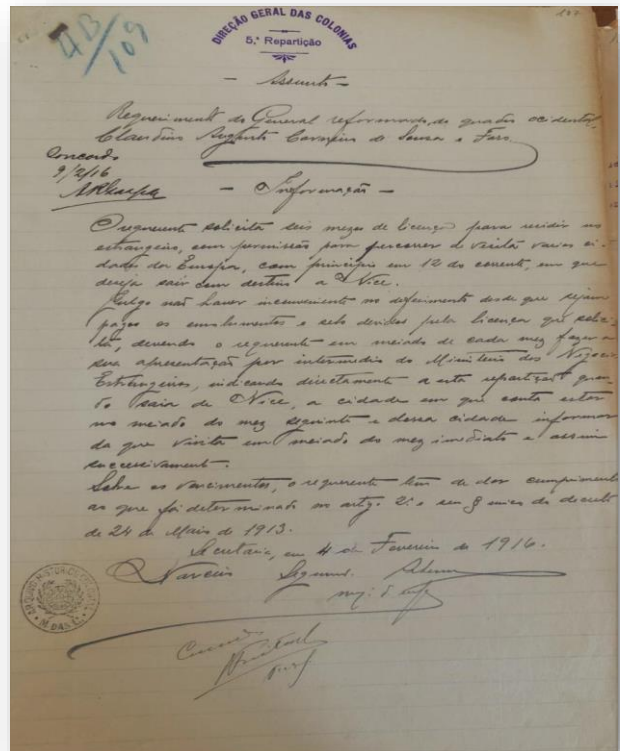 4B/109
DIREÇÃO GERAL DAS COLONIAS
5.ª Repartição
— Assunto —
Requerimento do General reformado, do quadro occidental,
Claudino Augusto Carneiro de Sousa e Faro
Concordo
9/2/16
— Informação —
O requerente solicita seis mezes de licença para residir no
estrangeiro, com permissão para percorrer e visitar varias ci-
dades da Europa, com principio em 12 do corrente, em que
deseja sair com destino a Nice.
Julgo não haver inconveniente no deferimento desde que sejam
pagos os emolumentos e selo devidos pela licença que solici-
ta, devendo o requerente em meiado de cada mez fazer a
sua apresentação por intermedio do Ministerio dos Negocios
Estrangeiros, indicando directamente a esta repartição quan-
do saia de Nice, a cidade em que conta estar
no meiado do mez seguinte e dessa cidade informar
da que visita em meiado do mez imediato e assim
successivamente.
Sobre os vencimentos, o requerente tem de dar cumprimento
ao que foi determinado no artgo 2.º e seu § unico do decreto
de 24 de Maio de 1913.
Secretaria, em 4 de Fevereiro de 1916.